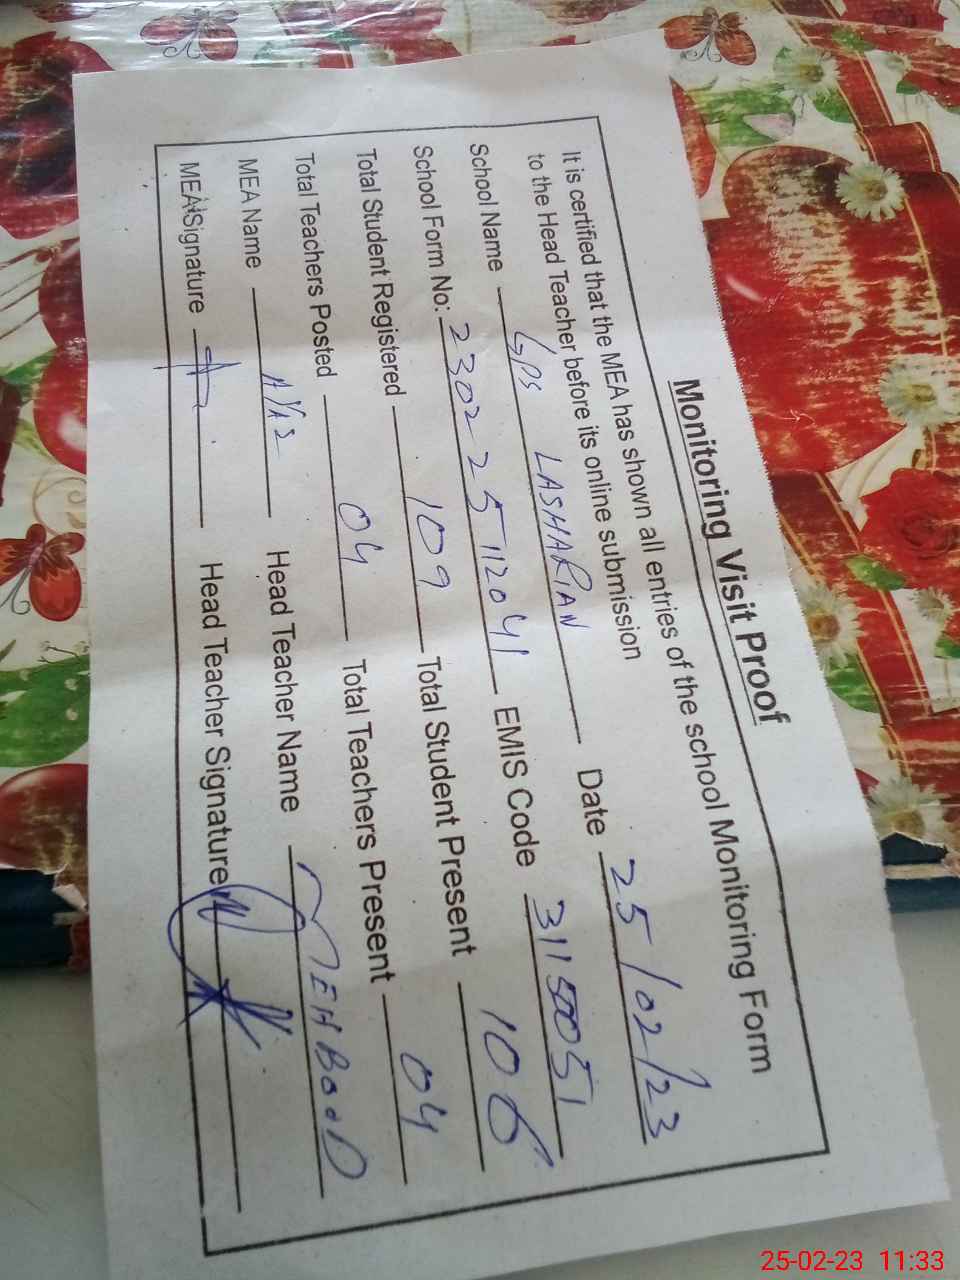 Monitoring Visit Proof
It is certified that the MEA has shown all entries of the school Monitoring Form
to the Head Teacher before its online submission
School Name GPS LASHARIAN Date 25/02/23
School Form No: 2302 25112041 EMIS Code 31150051
Total Student Registered 109 Total Student Present 106
Total Teachers Posted 04 Total Teachers Present 04
MEA Name Head Teacher Name MEHBOOD
MEA Signature Head Teacher Signature
25-02-23 11:33